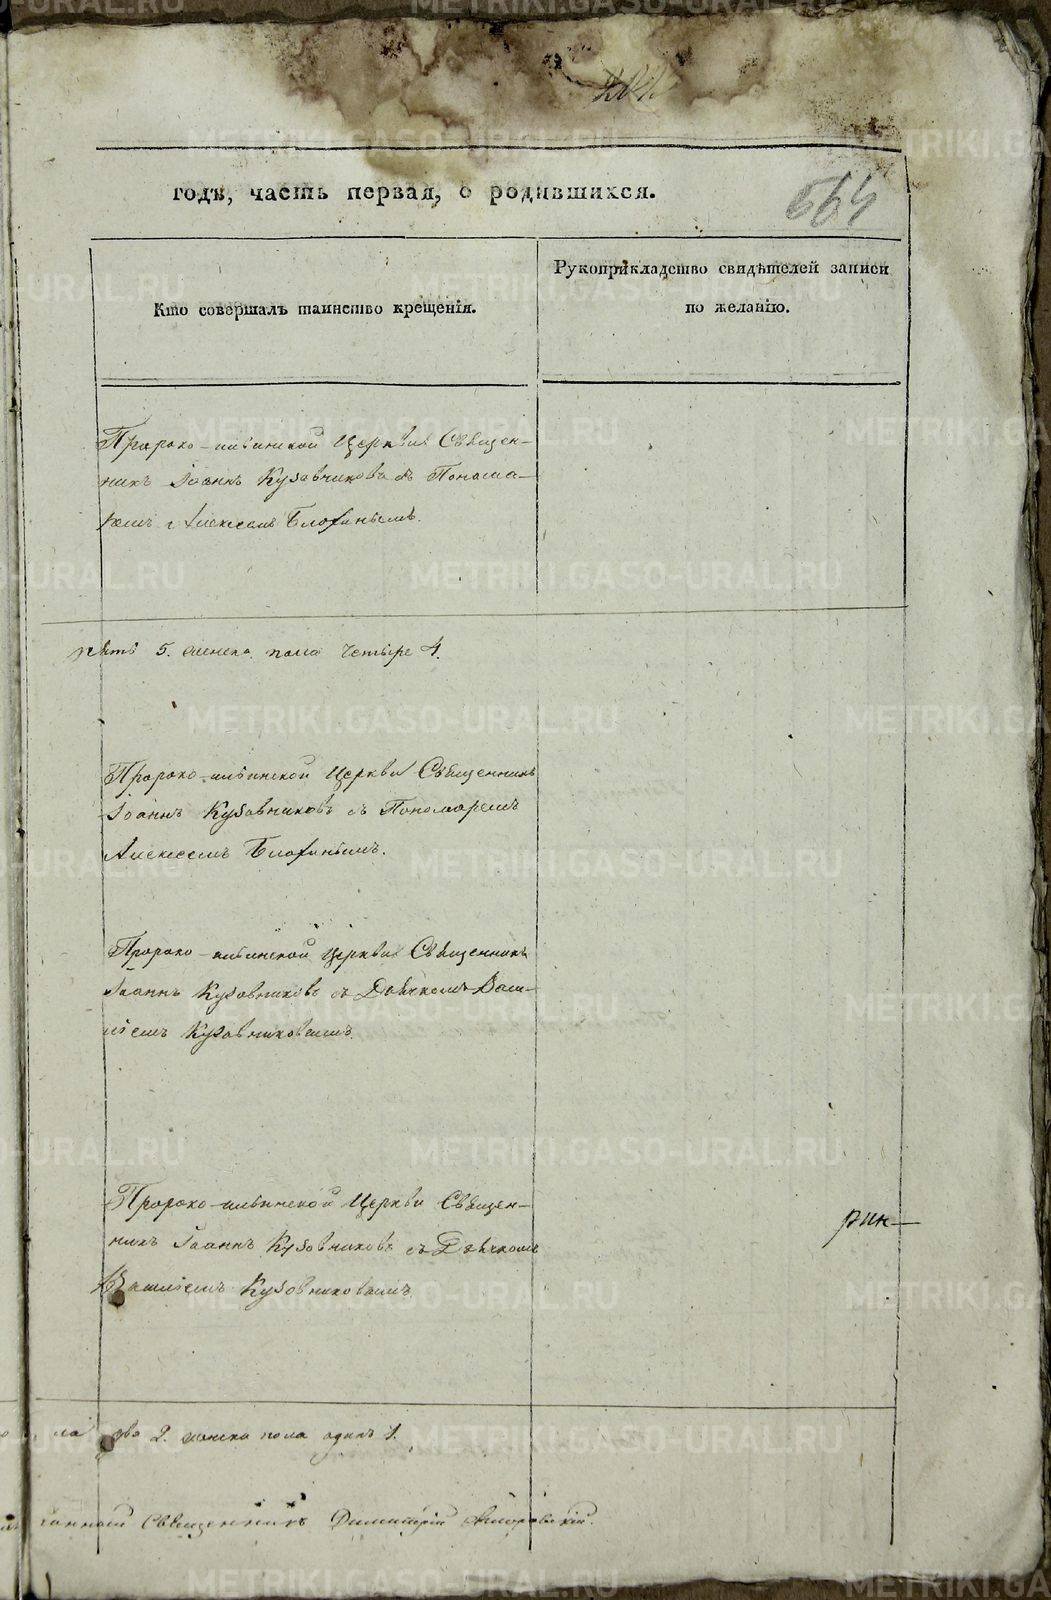 годѣ, часть первая, о родившихся.
564
Кто совершалъ таинство крещенія.
Рукоприкладство свидѣтелей записи
по желанію.
Пророко-ильинской Церкви Священ-
никъ Іоаннъ Кузовниковъ съ Понома-
ремъ Алексеемъ
пять 5. женска пола четыре 4.
Пророко-ильинской Церкви Священникъ
Іоаннъ Кузовниковъ съ Пономаремъ
Алексеемъ
Пророко-ильинской Церкви Священникъ
Іоаннъ Кузовниковъ съ Дьячкомъ Васи-
ліемъ Кузовниковымъ.
Пророко-ильинской Церкви Священ-
никъ Іоаннъ Кузовниковъ съ Дьячкомъ
Василіемъ Кузовниковымъ
рин-
ла два 2. женска пола одинъ 1.
Священникъ Димитрій
METRIKI.GASO-URAL.RU